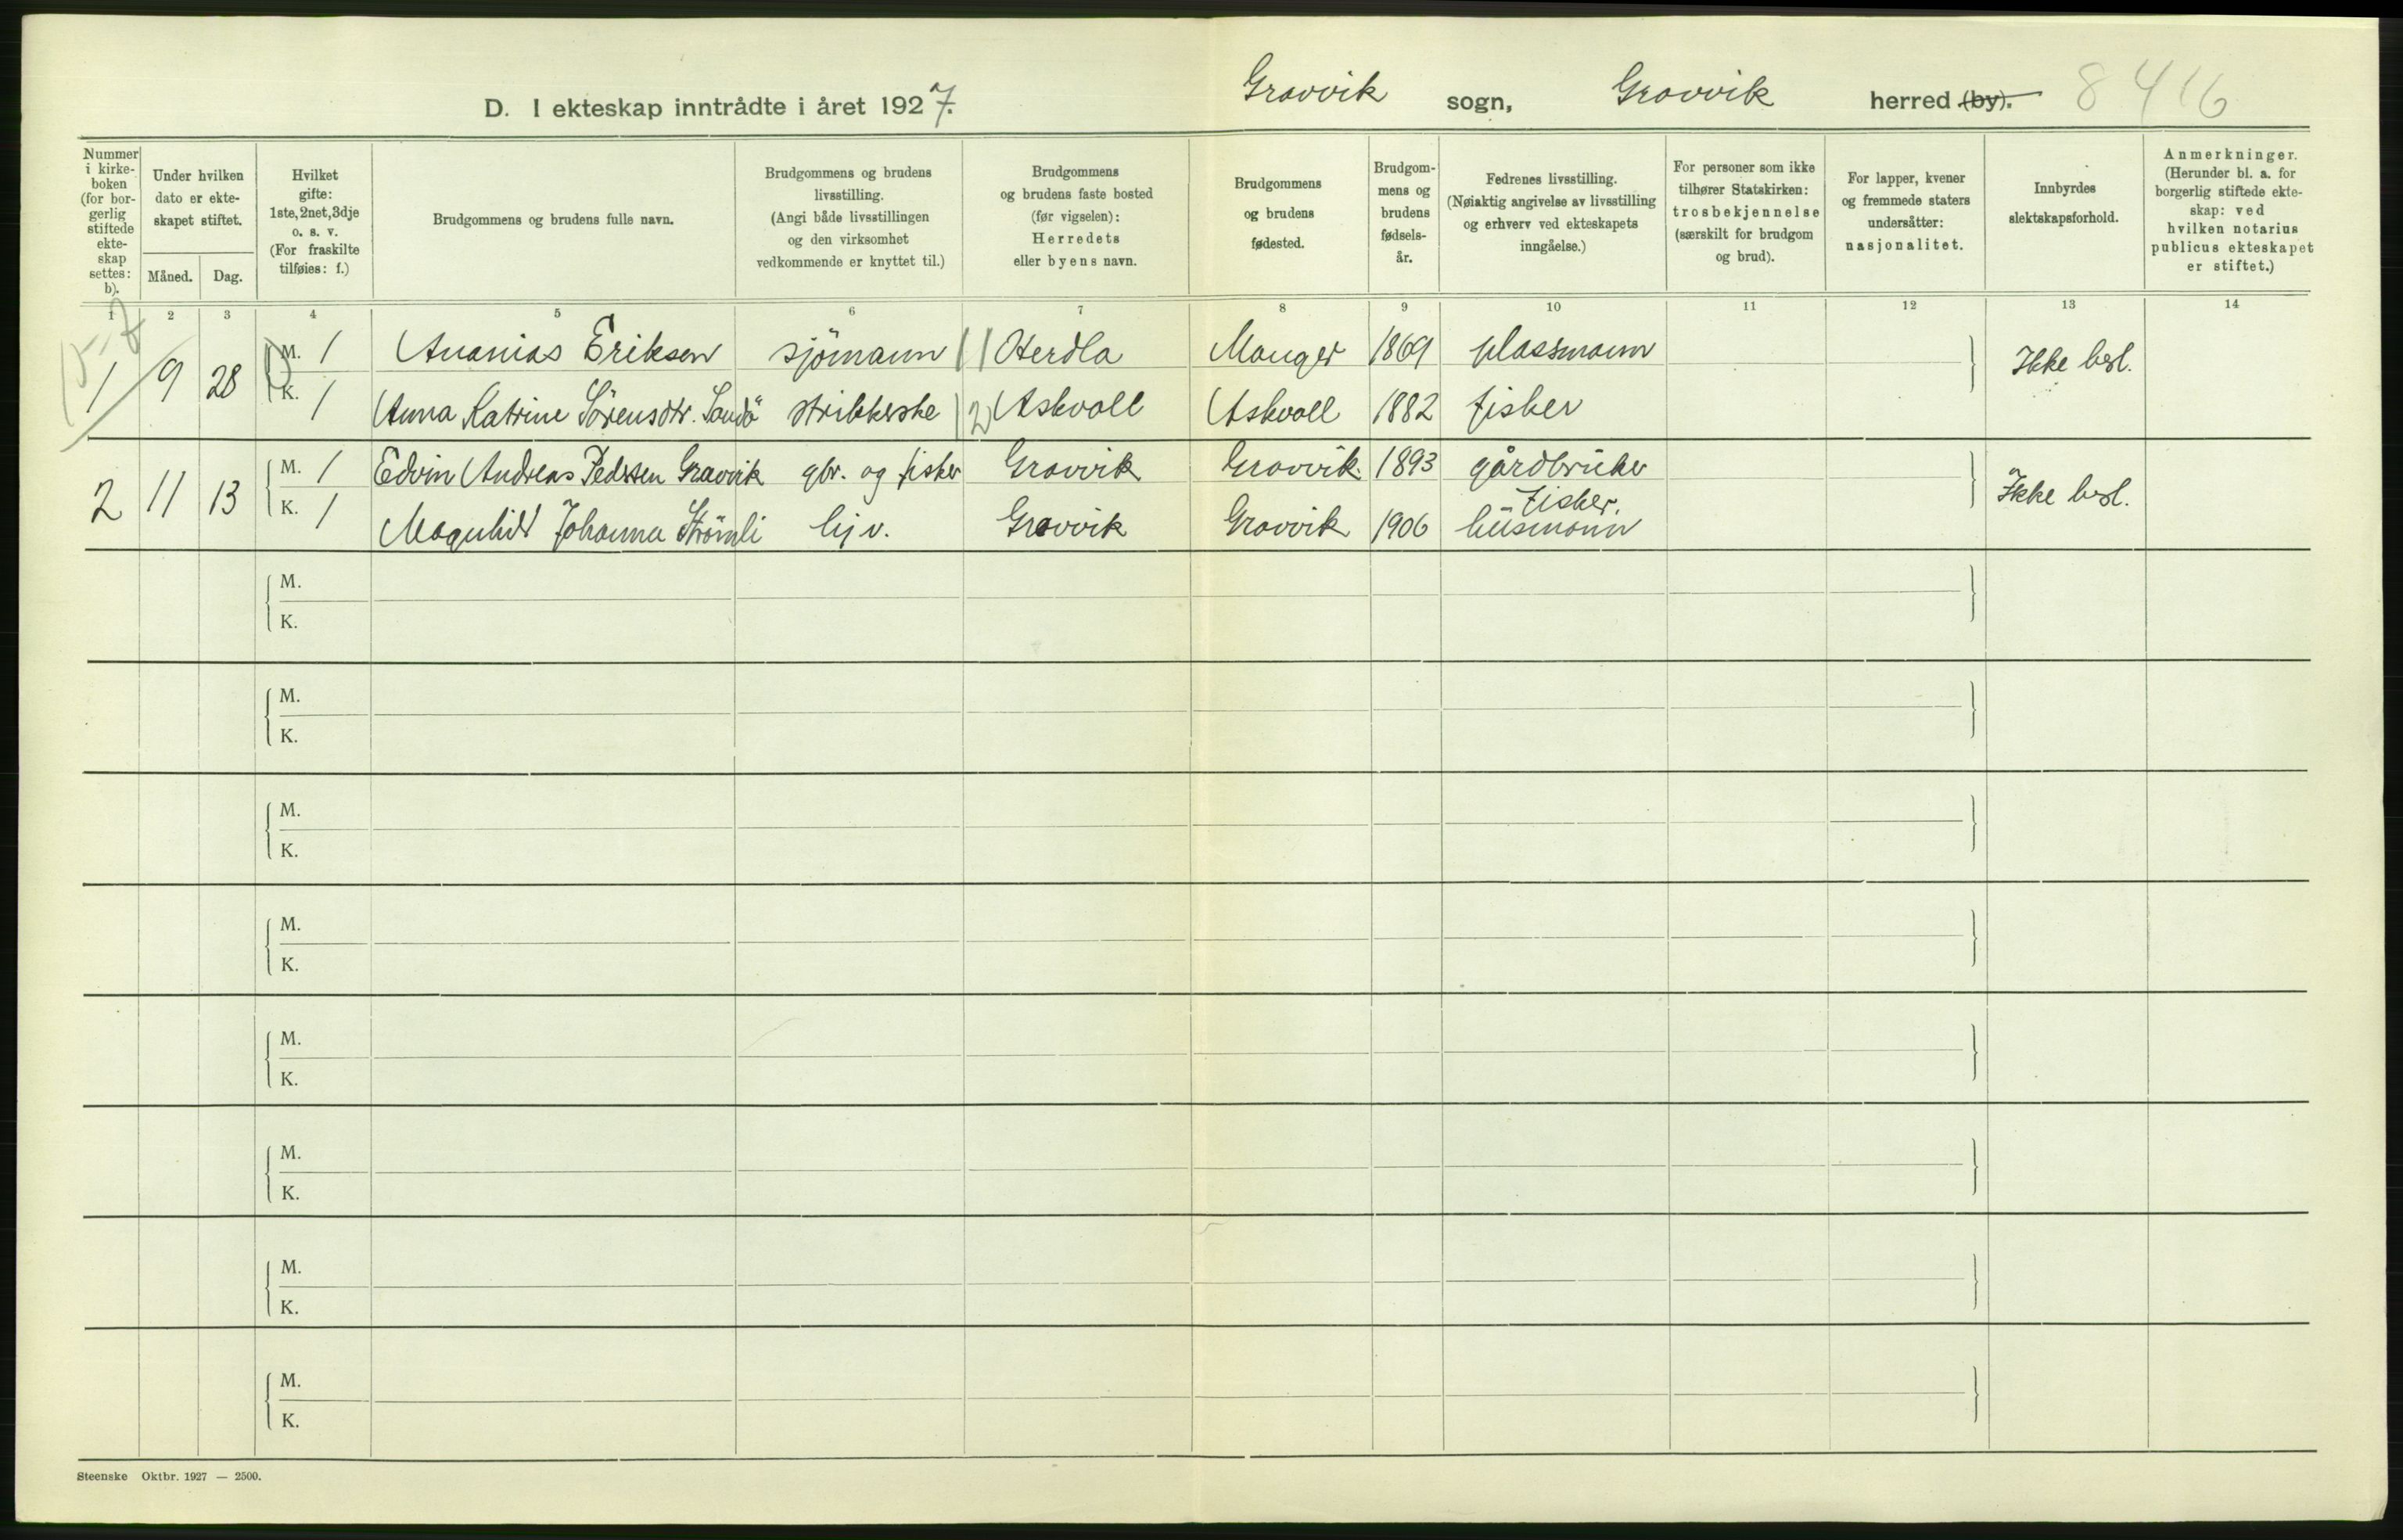 D. I ekteskap inntrådte i året 1927.
Gravvik sogn, Gravvik herred (by). 8416
Nummer i kirke-boken (for bor-gerlig stiftede ekte-skap settes: b).
Under hvilken dato er ekte-skapet stiftet.
Måned. Dag.
Hvilket gifte: 1ste, 2net, 3dje o. s. v. (For fraskilte tilføies: f.)
Brudgommens og brudens fulle navn.
Brudgommens og brudens livsstilling. (Angi både livsstillingen og den virksomhet vedkommende er knyttet til.)
Brudgommens og brudens faste bosted (før vigselen): Herredets eller byens navn.
Brudgommens og brudens fødested.
Brudgom-mens og brudens fødsels-år.
Fedrenes livsstilling. (Nøiaktig angivelse av livsstilling og erhverv ved ekteskapets inngåelse.)
For personer som ikke tilhører Statskirken: trosbekjennelse (særskilt for brudgom og brud).
For lapper, kvener og fremmede staters undersåtter: nasjonalitet.
Innbyrdes slektskapsforhold.
Anmerkninger. (Herunder bl. a. for borgerlig stiftede ekte-skap: ved hvilken notarius publicus ekteskapet er stiftet.)
1 2 3 4 5 6 7 8 9 10 11 12 13 14
1 9 28 M. 1 Ananias Eriksen sjömann Herdla Manger 1869 plassmann Ikke besl.
K. 1 Anna Katrine Sörensdtr. Sandö strikkerske Askvoll Askvoll 1882 fisker
2 11 13 M. 1 Edvin Andreas Pedersen Gravvik gbr. og fisker Gravvik Gravvik 1893 gårdbruker Ikke besl.
K. 1 Magnhild Johanna Strömli hj v. Gravvik Gravvik 1906 fisker. husmann
M.
K.
M.
K.
M.
K.
M.
K.
M.
K.
M.
K.
M.
K.
M.
K.
Steenske Oktbr. 1927 — 2500.